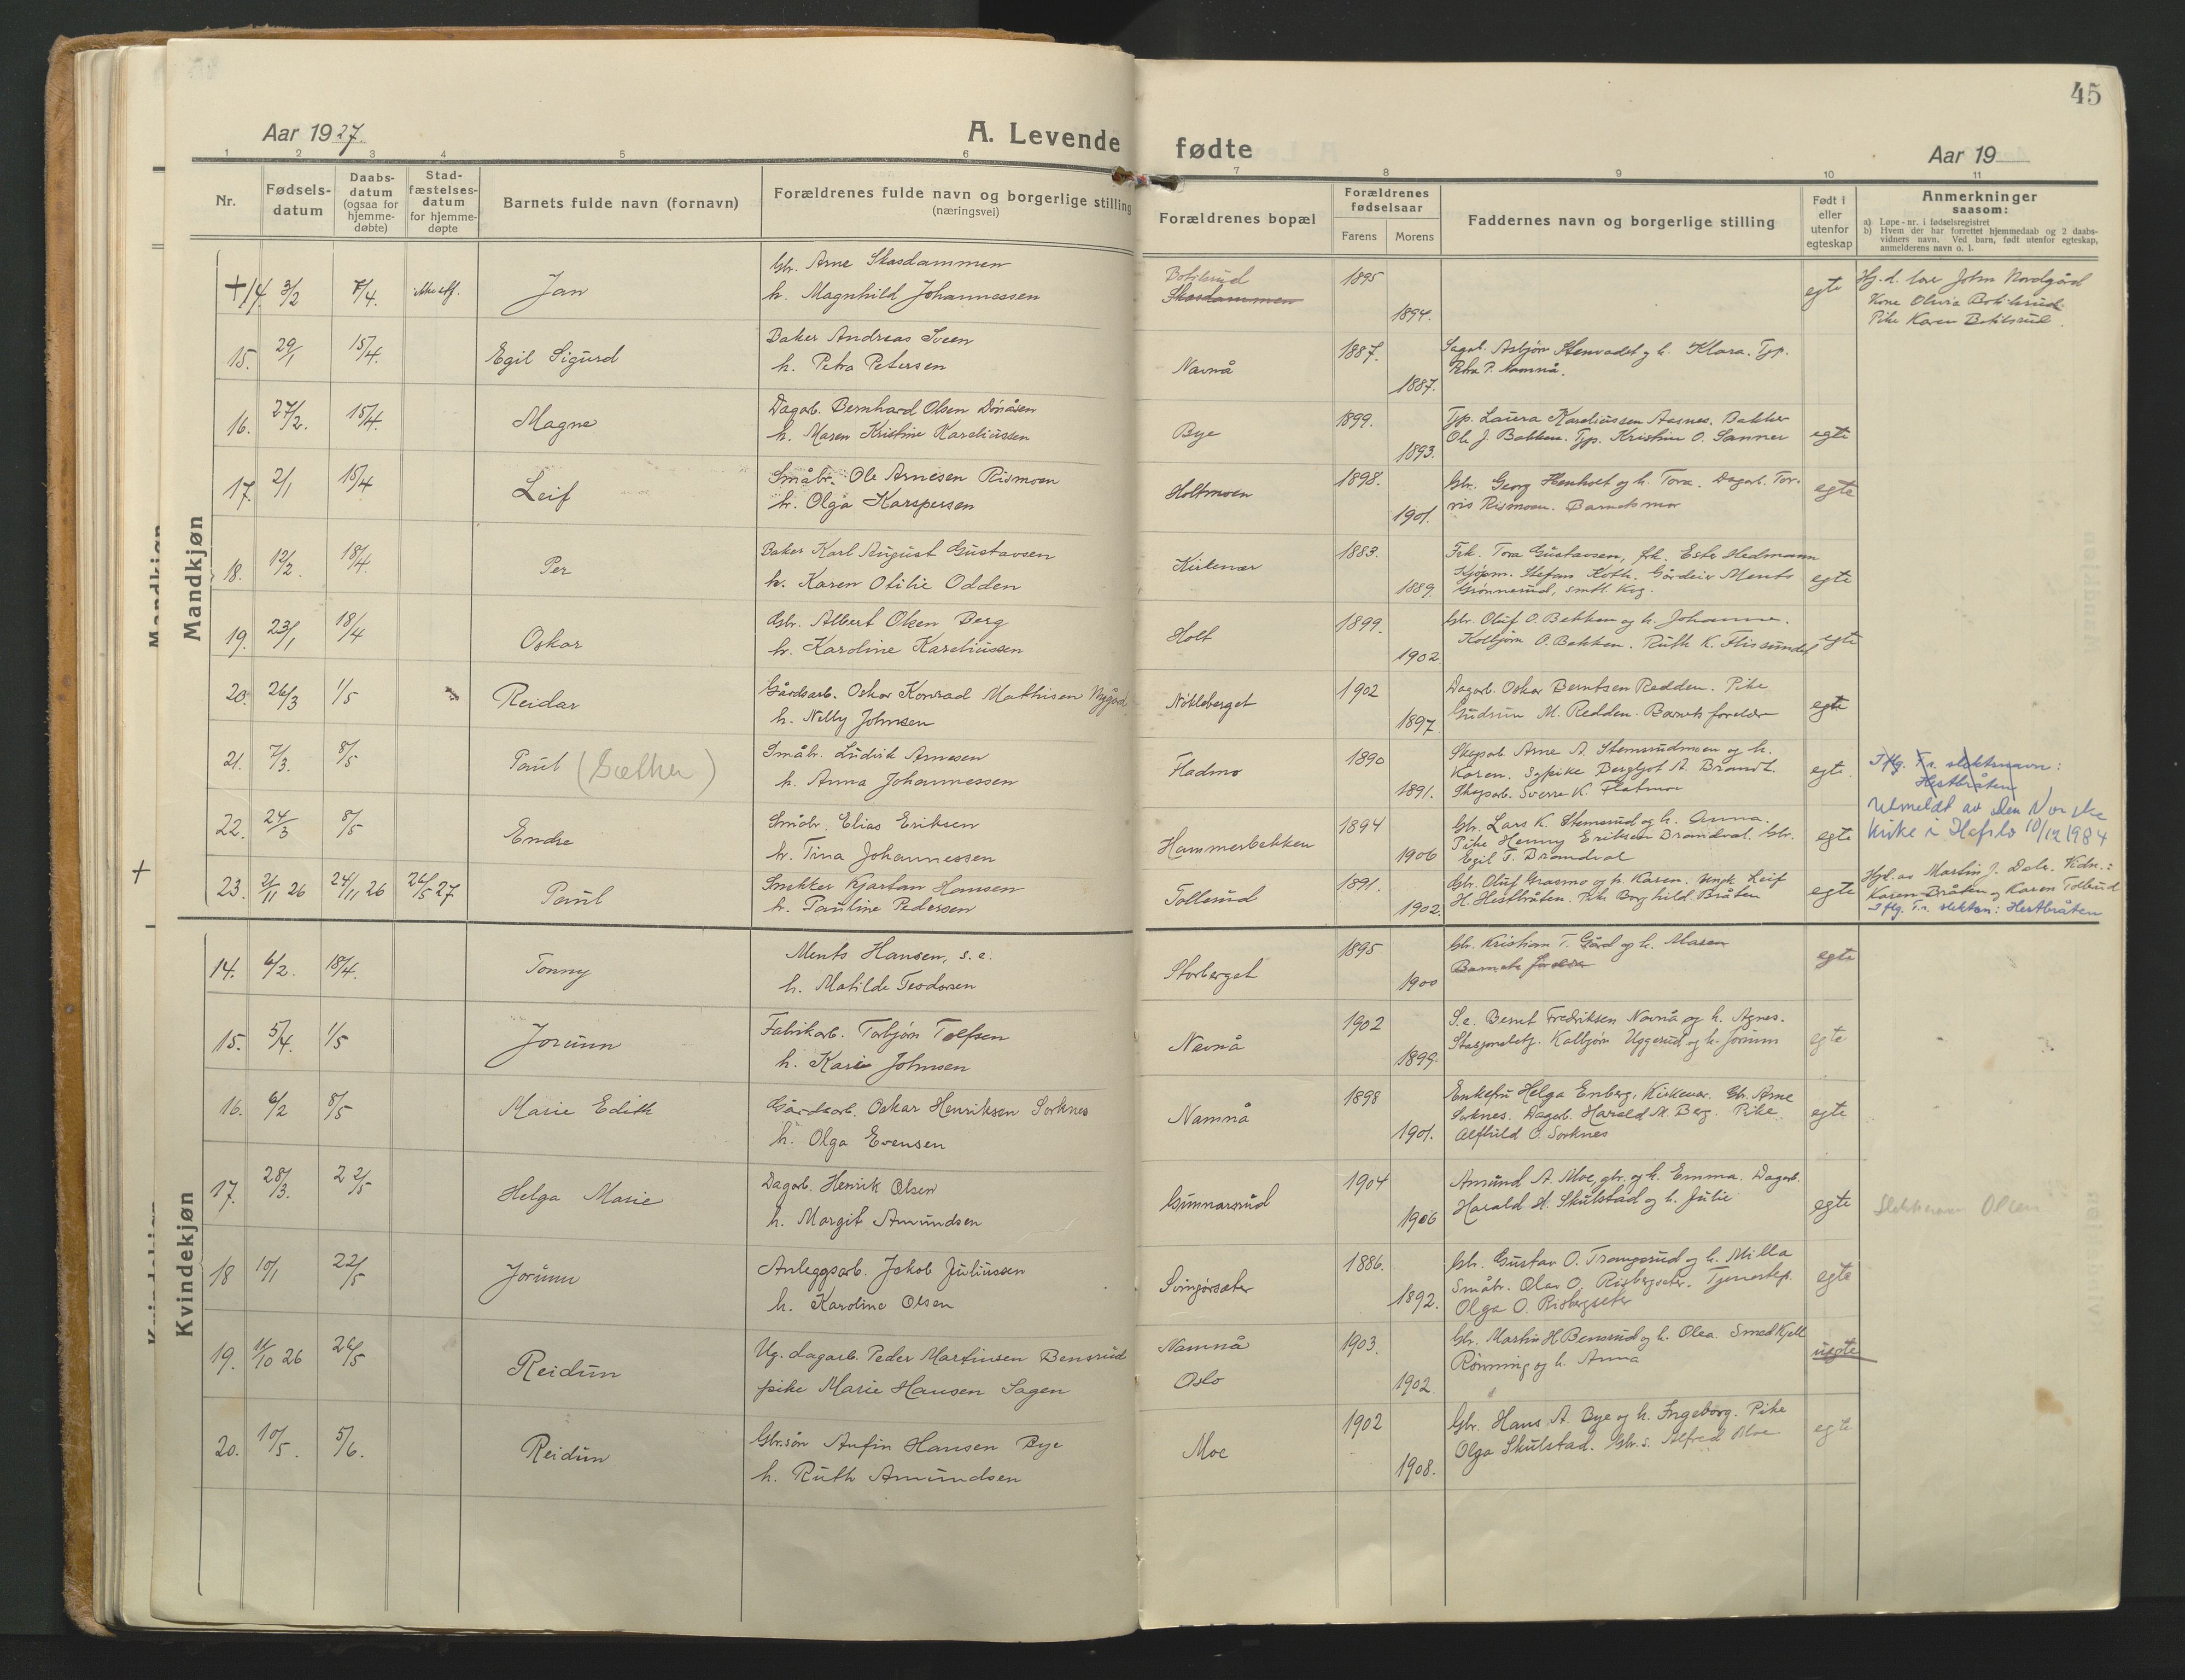 45
Aar 1927.
A. Levende fødte
Aar 19
1 2 3 4 5 6 7 8 9 10 11
Nr.
Fødsels-
datum
Daabs-
datum
(ogsaa for
hjemme-
døbte)
Stad-
fæstelses-
datum
for hjemme-
døpte
Barnets fulde navn (fornavn)
Forældrenes fulde navn og borgerlige stilling
(næringsvei)
Forældrenes bopæl
Forældrenes
fødselsaar
Farens Morens
Faddernes navn og borgerlige stilling
Født i
eller
utenfor
egteskap
Anmerkninger
saasom:
a) Løpe-nr. i fødselsregistret
b) Hvem der har forrettet hjemmedaab og 2 daabs-
vidners navn. Ved barn, født utenfor egteskap,
anmelderens navn o. l.
Mandkjøn
+14. 3/2 7/4. Jan
Gbr. Arne Skasdammen
h. Magnhild Johannessen
Botilsrud
Skasdammen
1895 1894. egte
Hj. d. lær John Nordgård
Kone Olivia Botilsrud
Pike Karen Botilsrud.
15. 29/1 15/4. Egil Sigurd
Baker Andreas Sveen
h. Petra Petersen
Navnå 1887. 1887.
Sagarb. Asbjørn Stenvadet og h. Klara. Tjp.
Petra P. Namnå.
16. 27/2. 15/4. Magne
Dagarb. Bernhard Olsen Dønåsen
h. Maren Kristine Kareliussen
Bye 1899. 1893.
Tjp. Laura Kareliussen Aasnes. Bakker
Ole J. Bakken. Tjp. Kristine O. Sanner egte
17. 2/1 15/4 Leif
Småbr. Ole Arnesen Rismoen
h. Olga Kaspersen
Holtmoen 1898. 1901.
Gbr. Georg Henholt og h. Tora. Dagarb. Tor-
vis Rismoen. Barnets mor egte
18. 12/2. 18/4. Per
Baker Karl August Gustavsen
h. Karen Otilie Odden
Kirkenær 1883. 1889.
Frk. Tora Gustavsen, frk. Ester Hedmann
Kjøpm. Stefan Koth. Gårdeier Ments
Grønnerud, smtl. Krg. egte
19. 23/1 18/4 Oskar
Gbr. Albert Olsen Berg
h. Karoline Kareliussen
Holt 1899. 1902.
Gbr. Oluf O. Bekken og h. Johanne.
Kolbjørn O. Bekken. Ruth K. Flissundet egte
20. 26/3 1/5 Reidar
Gårdsarb. Oskar Konrad Mathisen Nygård
h. Nelly Johnsen
Nøkleberget 1902 1897.
Dagarb. Oskar Berntsen Redden. Pike
Gudrun M. Redden. Barnets foreldre egte
21. 7/3. 8/5 Paul (Sæther)
Småbr. Ludvik Arnesen
h. Anna Johannessen
Fladmo 1890 1891.
Skogsarb. Arne A. Stemsrudmoen og h.
Karen. Sypike Bergljot A. Brandt.
Skogsarb. Sverre K. Flatmoe egte.
Iflg. F.r. slektsnavn:
Hestbråten
Utmeldt av den Norske
kirke i Hafslo 10/12 1984
22. 24/3 8/5 Endre
Småbr. Elias Eriksen
h. Tina Johannessen
Hammerbekken 1894 1906
Gbr. Lars K. Stemsrud og h. Anna.
Pike Henny Eriksen Brandval. Gbr.
Egil T. Brandval egte
+ 23. 21/11 26 24/11 26 26/5 27 Paul
Snekker Kjartan Hansen
h. Pauline Pedersen
Tollerud 1891. 1902.
Gbr. Oluf Grasmo og h. Karen. Leif
H. Hestbråten. Pike Borghild Bråten egte
Hjd. av Martin J. Dale. Vidn.:
Karen Bråten og Karen Tollerud
Iflg. F.r. slektsn: Hestbråten
Kvindekjøn
14. 6/2. 18/4. Tonny
Ments Hansen, s.e.
h. Matilde Teodorsen
Storberget 1895 1900
Gbr. Kristian T. Gård og h. Maren
Barnets foreldre egte
15. 5/4. 1/5 Jorunn
Fabrikarb. Torbjørn Tolfsen
h. Kari Johnsen
Navnå 1902 1899
S.e. Bernt Fredriksen Navnå og h. Agnes.
Stasjonsbetj. Kolbjørn Uggerud og h. Jorunn egte
16. 6/2 8/5 Marie Edith
Gårdsarb. Oskar Henriksen Sorknes
h. Olga Evensen
Namnå 1898 1901.
Enkefru Helga Enberg, Kirkenær. Gbr. Arne
Sorknes. Dagarb. Harald M. Berg. Pike
Alfhild O. Sorknes egte
17. 28/3. 22/5 Helga Marie
Dagarb. Henrik Olsen
h. Margit Amundsen
Gunnarsrud 1904 1906
Amund A. Moe, gbr. og h. Emma. Dagarb.
Harald H. Skulstad og h. Julie egte
Slektsnavn Olsen
18 10/1 22/5 Jorunn
Anleggsarb. Jakob Juliussen
h. Karoline Olsen
Svingørsæter 1886. 1892.
Gbr. Gustav O. Trangsrud og h. Milla
Småbr. Olav O. Risbergseter. Tjenestep.
Olga O. Risbergseter egte
19. 11/10 26 26/5 Reidun
Ug. dagarb. Peder Martinsen Bensrud
pike Marie Hansen Sagen
Namnå
Oslo
1903. 1902.
Gbr. Martin H. Bensrud og h. Olea. Smed Kjell
Rønning og h. Anna uegte
20. 10/5. 5/6. Reidun
Gbr.søn Anfin Hansen Bye
h. Ruth Amundsen
Moe 1902 1908.
Gbr. Hans A. Bye og h. Ingeborg. Pike
Olga Skulstad. Gbr.s. Alfred Moe egte